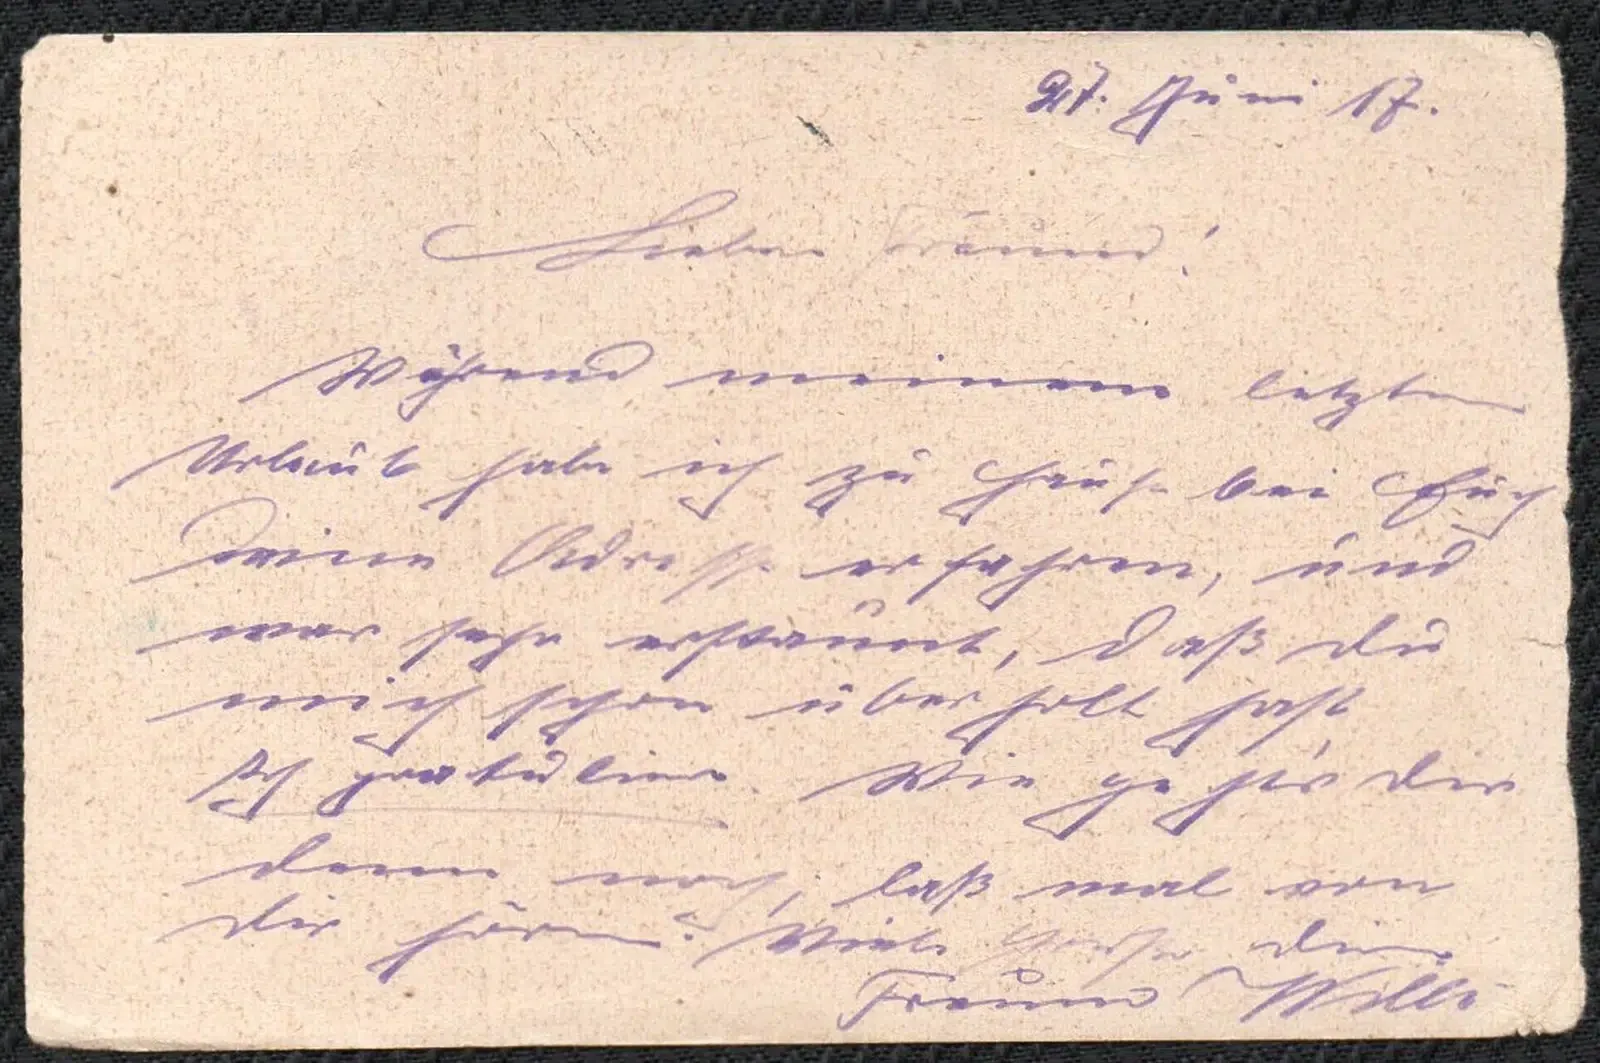 27. Juni 17.
Lieber Freund!
Während meinem letzten
Urlaub habe ich zu Hause bei Euch
Deine Adresse erfahren, und
war sehr erstaunt, daß du
mich schon überholt hast,
Ich gratuliere. Wie geht's dir
denn noch, laß mal von
dir hören. Viele Grüße dein
Freund Willi